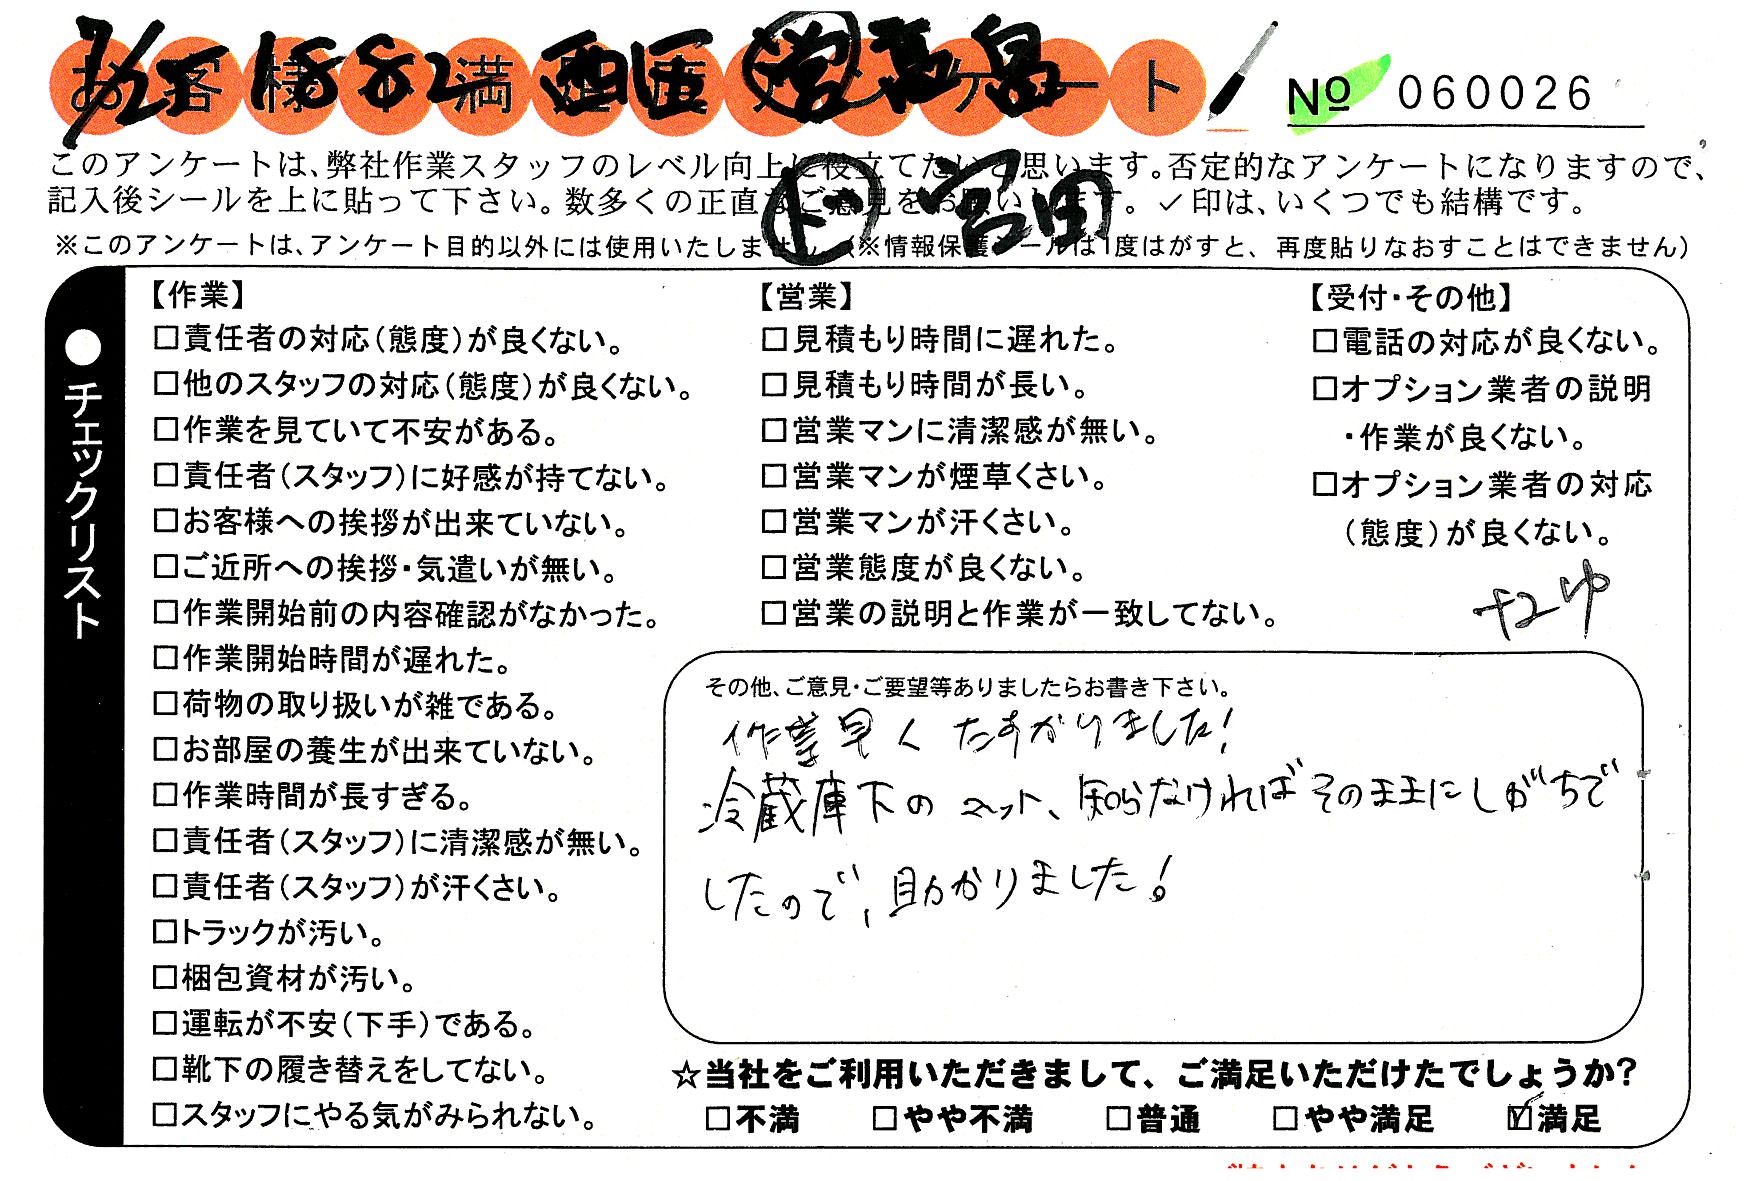 7/25 1882 西区 営 高畠
お客様不満足度アンケート
№ 060026
このアンケートは、弊社作業スタッフのレベル向上に役立てたいと思います。否定的なアンケートになりますので、
記入後シールを上に貼って下さい。数多くの正直なご意見をお願いします。✓印は、いくつでも結構です。
ド 宮田
※このアンケートは、アンケート目的以外には使用いたしません。(※情報保護シールは1度はがすと、再度貼りなおすことはできません)
●チェックリスト
【作業】
□責任者の対応(態度)が良くない。
□他のスタッフの対応(態度)が良くない。
□作業を見ていて不安がある。
□責任者(スタッフ)に好感が持てない。
□お客様への挨拶が出来ていない。
□ご近所への挨拶・気遣いが無い。
□作業開始前の内容確認がなかった。
□作業開始時間が遅れた。
□荷物の取り扱いが雑である。
□お部屋の養生が出来ていない。
□作業時間が長すぎる。
□責任者(スタッフ)に清潔感が無い。
□責任者(スタッフ)が汗くさい。
□トラックが汚い。
□梱包資材が汚い。
□運転が不安(下手)である。
□靴下の履き替えをしてない。
□スタッフにやる気がみられない。
【営業】
□見積もり時間に遅れた。
□見積もり時間が長い。
□営業マンに清潔感が無い。
□営業マンが煙草くさい。
□営業マンが汗くさい。
□営業態度が良くない。
□営業の説明と作業が一致してない。
【受付・その他】
□電話の対応が良くない。
□オプション業者の説明
・作業が良くない。
□オプション業者の対応
(態度)が良くない。
その他、ご意見・ご要望等ありましたらお書き下さい。
作業早く たすかりました!
冷蔵庫下のマット、知らなければそのままにしがちで
したので、助かりました!
☆当社をご利用いただきまして、ご満足いただけたでしょうか?
□不満 □やや不満 □普通 □やや満足 ☑満足